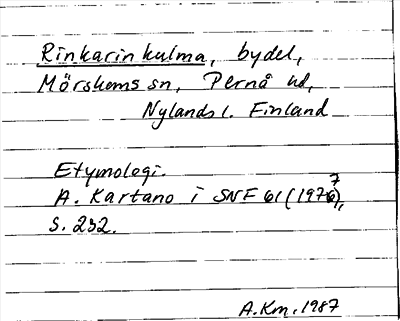 Rinkarinkulma, bydel,
Mörskoms sn, Pernå hd,
Nylands l. Finland
Etymologi.
A. Kartano i SNF 61 (1977),
S. 232.
A.Km. 1987